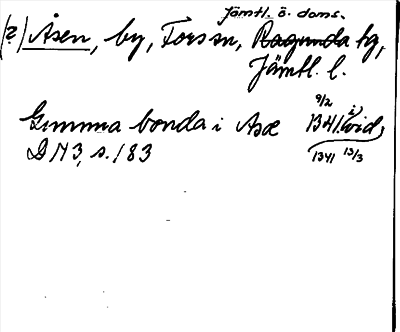 Jämtl. ö. doms.
(?) Åsen, by, Fors sn, Ragunda tg,
Jämtl. l.
Gumma bonda i Asæ 9/2 1341 i) vid,
DN 3, s. 183 1341 13/3